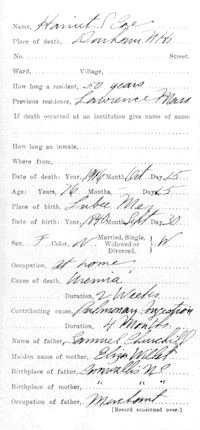 Name, Harriet S. Coe
Place of death, Durham N.H.
No. Street.
Ward, Village,
How long a resident, 20 years
Previous residence, Lawrence Mass
If death occurred at an institution give name of same
How long an inmate,
Where from,
Date of death: Year, 1916 Month, Oct. Day, 15
Age: Years, 76 Months, - Days, 25
Place of birth, Lubec Me.
Date of birth: Year, 1840 Month, Sept. Day, 20
Sex, F. Color, W Married, Single, Widowed or Divorced. W
Occupation, at home
Cause of death, Uremia
Duration, 2 Weeks
Contributing cause, Pulmonary
Duration, 4 Months
Name of father, Samuel Churchill
Maiden name of mother, Eliza
Birthplace of father, Cornwallis N.S.
Birthplace of mother, " " "
Occupation of father, Merchant
[Record continued over.]